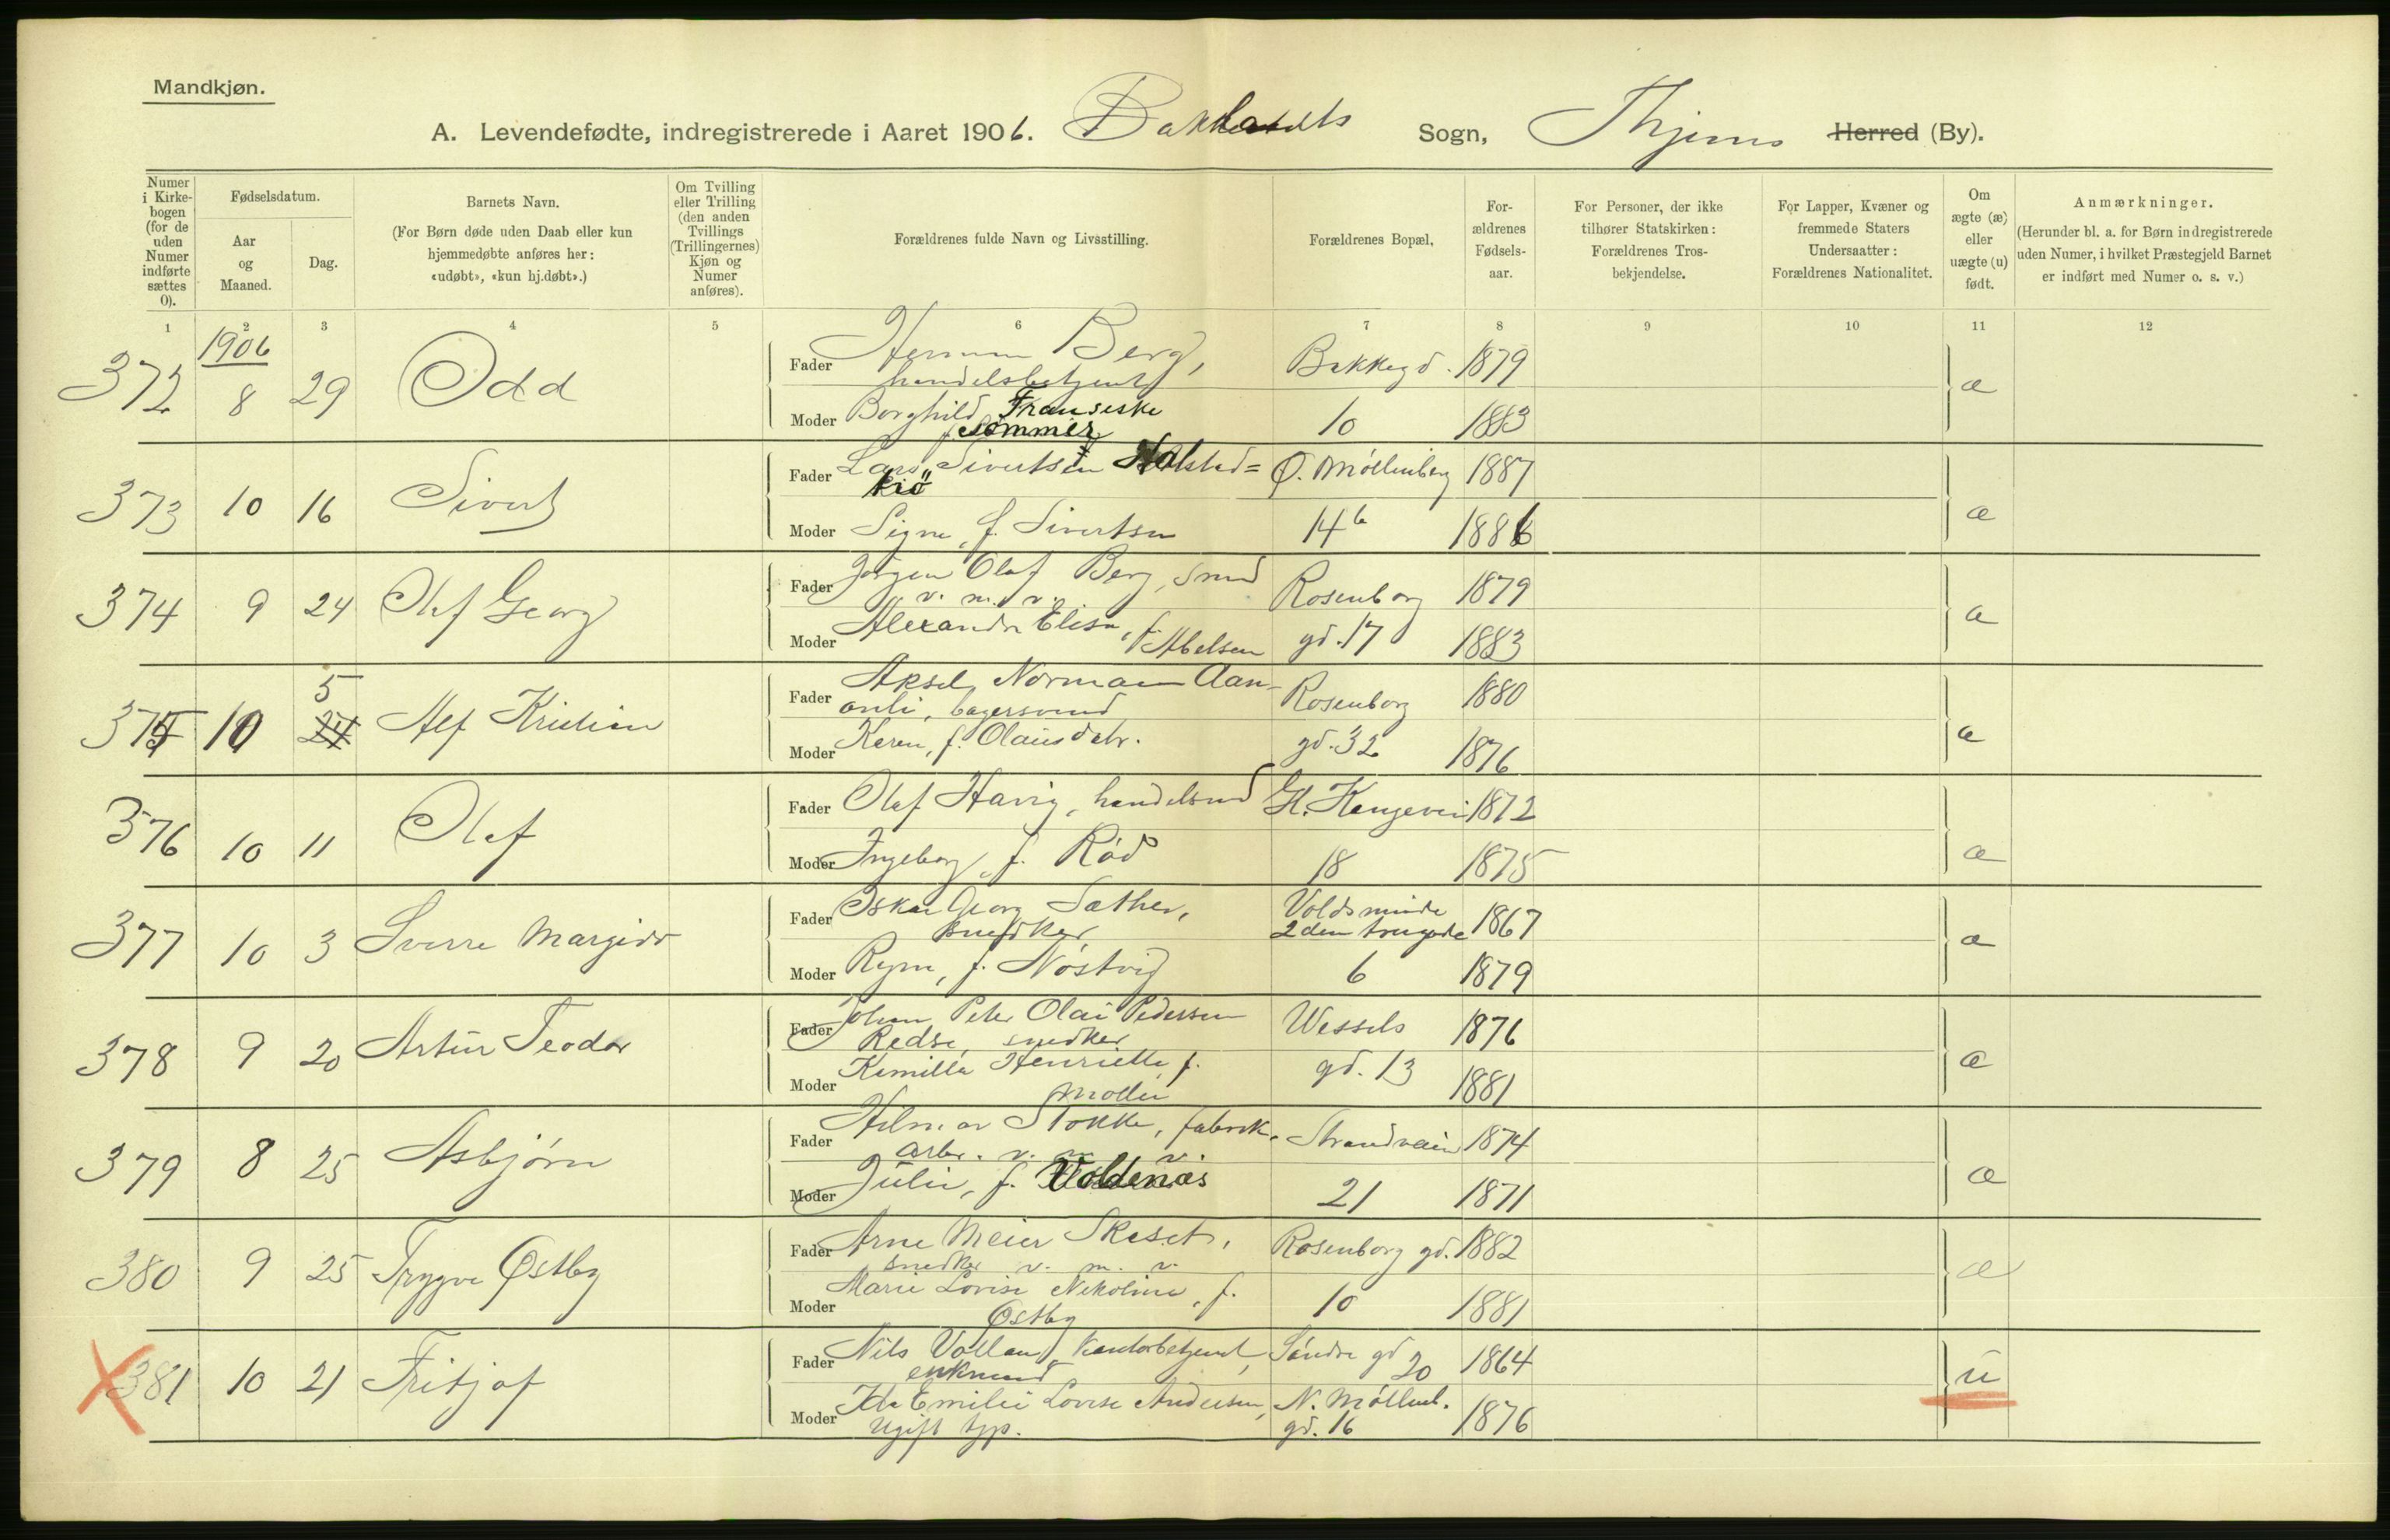 Mandkjøn.
A. Levendefødte, indregistrerede i Aaret 1906. Baklandets Sogn, Thjems Herred (By).
Numer i Kirke-bogen (for de uden Numer indførte sættes 0).
Fødselsdatum.
Aar og Maaned.
Dag.
Barnets Navn.
(For Børn døde uden Daab eller kun hjemmedøbte anføres her: «udøbt», «kun hj.døbt».)
Om Tvilling eller Trilling (den anden Tvillings (Trillingernes) Kjøn og Numer anføres).
Forældrenes fulde Navn og Livsstilling.
Forældrenes Bopæl.
For-ældrenes Fødsels-aar.
For Personer, der ikke tilhører Statskirken: Forældrenes Tros-bekjendelse.
For Lapper, Kvæner og fremmede Staters Undersaatter: Forældrenes Nationalitet.
Om ægte (æ) eller uægte (u) født.
Anmærkninger.
(Herunder bl. a. for Børn indregistrerede uden Numer, i hvilket Præstegjeld Barnet er indført med Numer o. s. v.)
1 2 3 4 5 6 7 8 9 10 11 12
1906
372 8 29 Odd
Fader Herman Berg, Bakkegd. 1879 æ
handelsbetjent
Moder Borghild Franseske 10 1883
f. Sommer
373 10 16 Sivert
Fader Lars Sivertsen Halsted= Ø. Möllenberg 1887 æ
Moder Signe, f. Sivertsen 14b 1886
374 9 24 Olaf Georg
Fader Jørgen Olaf Berg, smed Rosenborg 1879 æ
v. m. v.
Moder Alexandra Elisa, f. gd. 17 1883
Abelsen
375 10 5 24 Alf Kristian
Fader Aksel Norman Aan- Rosenborg 1880 æ
onli, bagersvend
Moder Karen, f. Olausdatr. gd. 32 1876
376 10 11 Olaf
Fader Olaf Havig, handelsmd Gl. Kongevei 1872 æ
Moder Ingeborg, f. Röd 18 1875
377 10 3 Sverre Margido
Fader Oskar Georg Sæther, Voldsminde 1867 æ
snedker 2den tvergade
Moder Ragna, f. Nöstvig 6 1879
378 9 20 Artur Teodor
Fader Johan Peter Olai Pedersen Wessels 1876 æ
Redse, snedker
Moder Kamilla Henriette, f. gd. 13 1881
Moller
379 8 25 Asbjörn
Fader Hilmar Stokke, fabrik. Strandveien 1874 æ
arbr. v. m. v.
Moder Julie, f. Voldenæs 21 1871
380 9 25 Trygve Østby
Fader Arne Meier Skaset, Rosenborg gd. 1882 æ
snedker v. m. v.
Moder Marie Lovise Nikoline, f. 10 1881
Østby
381 10 21 Fritjof
Fader Nils Vollan, kontorbetjent, Söndre gd 20 1864 u
enkmand
Moder Ida Emilie Lovise Andersen, N. Möllenb. 1876
ugift tjp. gd. 16